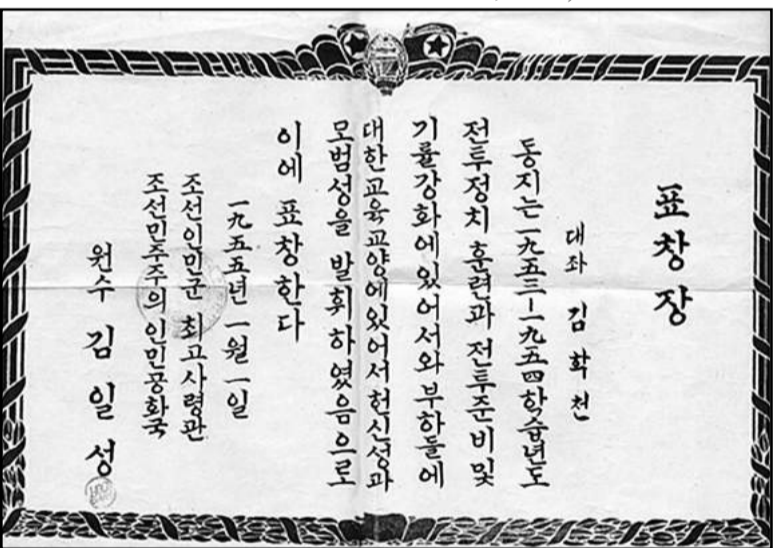 표창장
대좌 김학천
동지는 一九五三—一九五四학습년도
전투정치 훈련과 전투준비및
기률강화에있어서와 부하들에
대한교육교양에있어서헌신성과
모범성을 발휘하였음으로
이에 표창한다
一九五五년 一월 一일
조선인민군 최고사령관
조선민주주의 인민공화국
원수 김일성